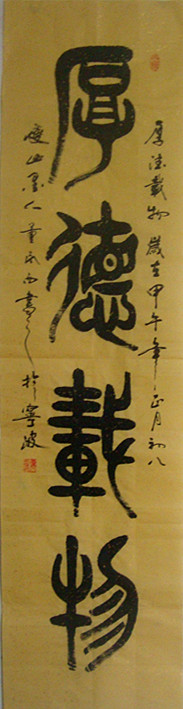 厚德載物
厚德載物 歲在甲午年正月初八
山墨人董 書之於寧波